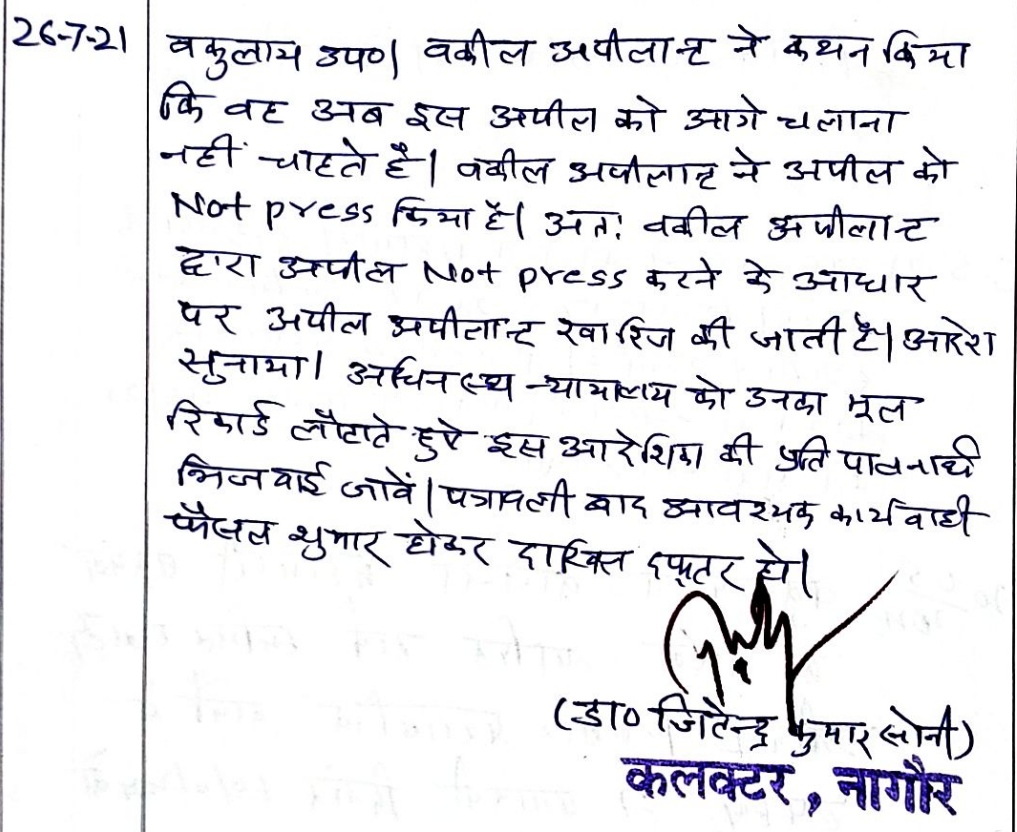 26-7-21
वकुलाय उप०। वकील अपीलान्ट ने कथन किया
कि वह अब इस अपील को आगे चलाना
नहीं चाहते है। वकील अपीलान्ट ने अपील को
Not press किया है। अतः वकील अपीलान्ट
द्वारा अपील Not press करने के आधार
पर अपील अपीलान्ट खारिज की जाती है। आदेश
सुनाया। अधिनस्थ न्यायालय को उनका मूल
रिकार्ड लौटाते हुऐ इस आदेशिका की प्रति पालनार्थ
भिजवाई जावें। पत्रावली बाद आवश्यक कार्यवाही
फैसल शुमार होकर दाखिल दफ्तर हो।
(डा० जितेन्द्र कुमार सोनी)
कलक्टर, नागौर